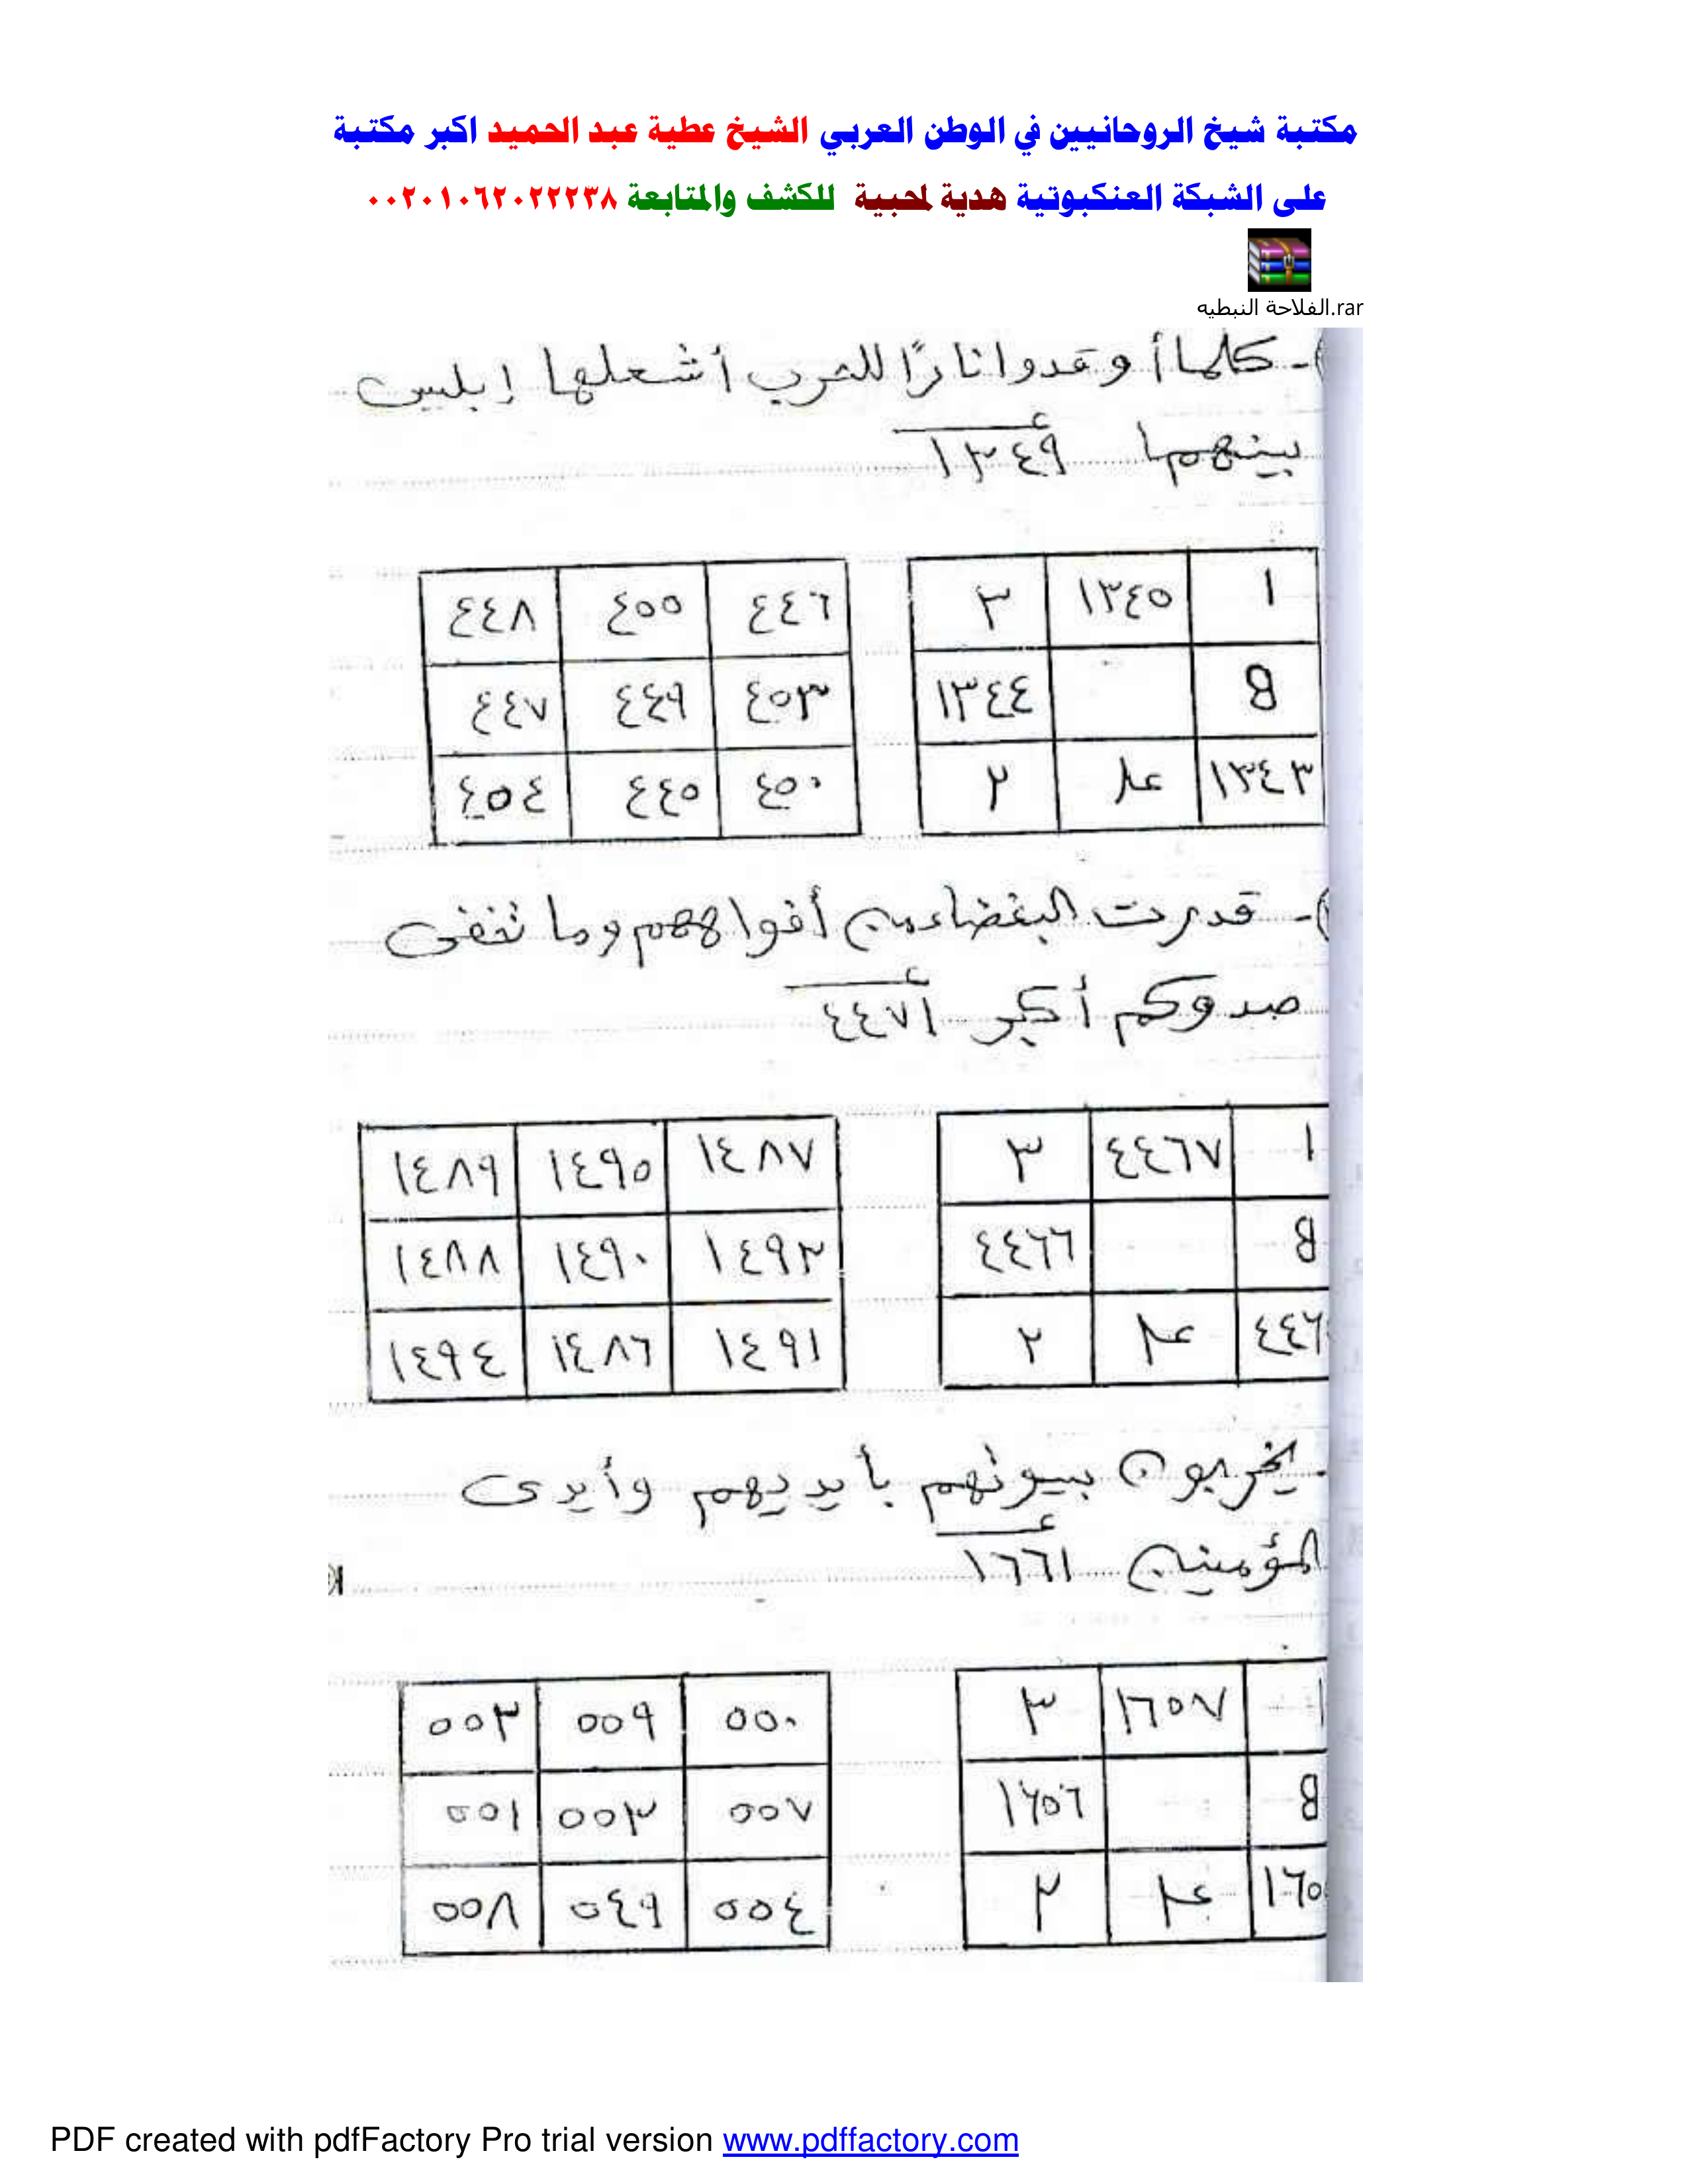 مكتبة شيخ الروحانيين في الوطن العربي الشيخ عطية عبد الحميد اكبر مكتبة
على الشبكة العنكبوتية هدية لمحبية للكشف والمتابعة ٠٠٢٠١٠٦٢٠٢٢٢٣٨
الفلاحة النبطيه.rar
- كلما أوقدوا نارًا للحرب أشعلها إبليس
بينهما ١٣٤٩
١ ١٣٤٥ ٣ ٤٤٦ ٤٥٥ ٤٤٨
8 ١٣٤٤ ٤٥٣ ٤٤٩ ٤٤٧
١٣٤٣ ٢ ٤٥٠ ٤٤٥ ٤٥٤
- قد بدت البغضاء من أفواههم وما تخفى
صدوركم أكبر ٤٤٧١
١ ٤٤٦٧ ٣ ١٤٨٧ ١٤٩٥ ١٤٨٩
8 ٤٤٦٦ ١٤٩٣ ١٤٩٠ ١٤٨٨
٤٤٦ ٢ ١٤٩١ ١٤٨٦ ١٤٩٤
- يخربون بيوتهم بأيديهم وأيدى
المؤمنين ١٦٦١
١ ١٦٥٧ ٣ ٥٥٠ ٥٥٩ ٥٥٣
8 ١٦٥٦ ٥٥٧ ٥٥٣ ٥٥١
١٦٥ ٢ ٥٥٤ ٥٤٩ ٥٥٨
PDF created with pdfFactory Pro trial version www.pdffactory.com